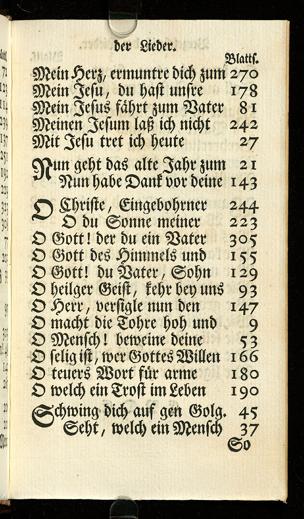 der Lieder.
Blatts.
Mein Herz, ermuntre dich zum 270
Mein Jesu, du hast unsre 178
Mein Jesus fährt zum Vater 81
Meinen Jesum laß ich nicht 242
Mit Jesu tret ich heute 27
Nun geht das alte Jahr zum 21
Nun habe Dank vor deine 143
O Christe, Eingebohrner 244
O du Sonne meiner 223
O Gott! der du ein Vater 305
O Gott des Himmels und 155
O Gott! du Vater, Sohn 129
O heilger Geist, kehr bey uns 93
O Herr, versigle nun den 147
O macht die Tohre hoh und 9
O Mensch! beweine deine 53
O selig ist, wer Gottes Willen 166
O teuers Wort für arme 180
O welch ein Trost im Leben 190
Schwing dich auf gen Golg. 45
Seht, welch ein Mensch 37
So